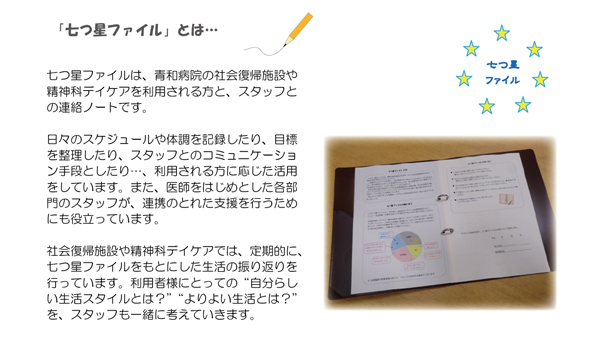 「七つ星ファイル」とは…
七つ星
ファイル
七つ星ファイルは、青和病院の社会復帰施設や
精神科デイケアを利用される方と、スタッフと
の連絡ノートです。
日々のスケジュールや体調を記録したり、目標
を整理したり、スタッフとのコミュニケーショ
ン手段としたり…、利用される方に応じた活用
をしています。また、医師をはじめとした各部
門のスタッフが、連携のとれた支援を行うため
にも役立っています。
社会復帰施設や精神科デイケアでは、定期的に、
七つ星ファイルをもとにした生活の振り返りを
行っています。利用者様にとっての“自分らし
い生活スタイルとは？”“よりよい生活とは？”
を、スタッフも一緒に考えていきます。